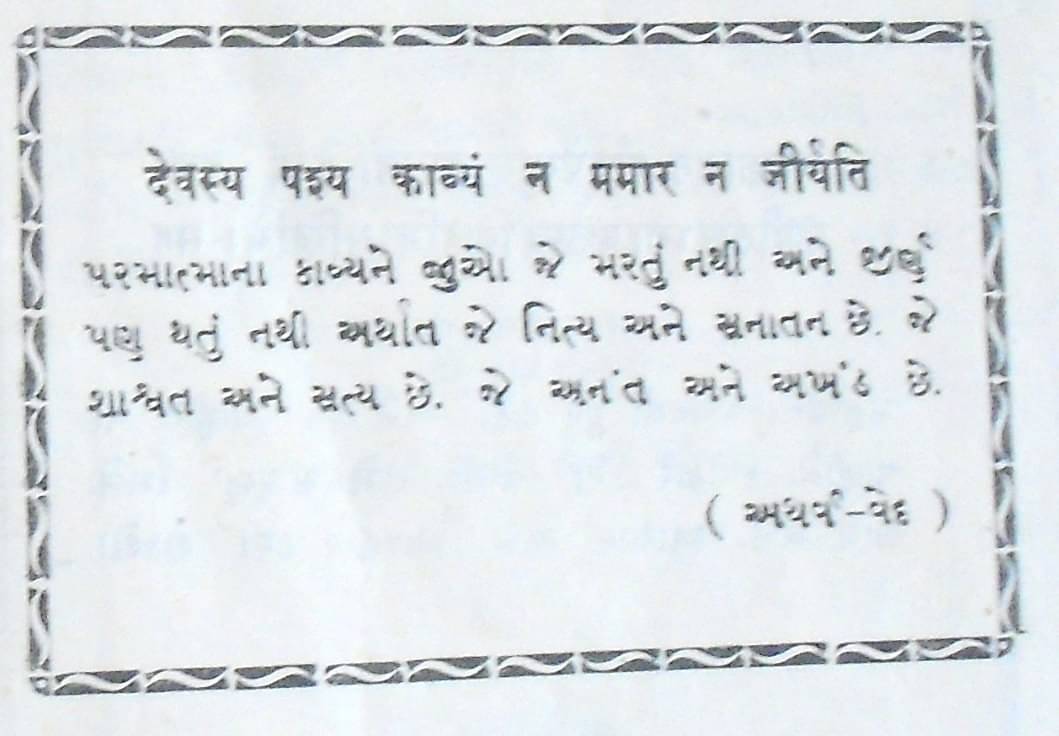 देवस्य पश्य काव्यं न ममार न जीर्यति
પરમાત્માના કાવ્યને જીુઓ જે મરતું નથી અને જીર્ણ
પણ થતું નથી અર્થાત જે નિત્ય અને સનાતન છે. જે
શાશ્વત અને સત્ય છે. જે અનંત અને અખંડ છે.
( અથર્વ-વેદ )